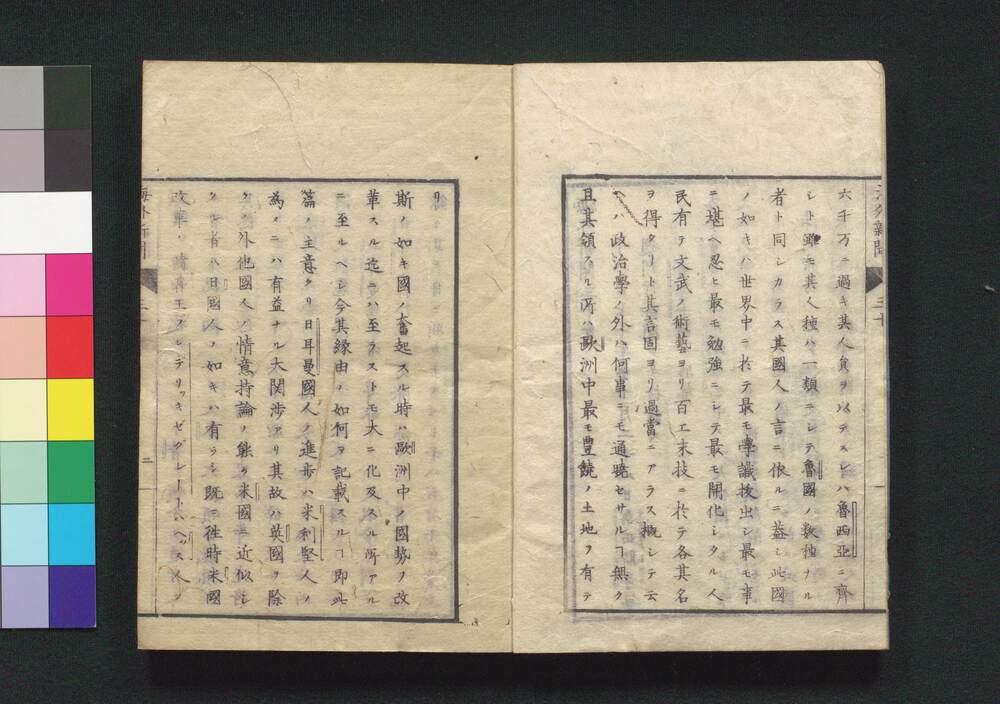 六千万ニ過キ其人員ヲ以テスレハ魯西亞ニ齊
シト雖モ其人種ハ一類ニシテ魯國ノ数種ナル
者ト同シカラス其國人ノ言ニ依ルニ蓋シ此國
ノ如キハ世界中ニ於テ最モ學識抜出シ最モ事
ニ堪ヘ忍ヒ最モ勉強ニシテ最モ開化シタル人
民有テ文武ノ術藝ヨリ百工末技ニ於テ各其名
ヲ得タリト其言固ヨリ過當ニアラス概シテ云
ヘハ政治學ノ外ハ何事ニモ通曉セサルヿ無ク
且其領スル所ハ歐洲中最モ豊饒ノ土地ヲ有テ
リ
斯ノ如キ國ノ奮起スル時ハ歐洲中ノ國勢ヲ改
革スル迄ニハ至ラストモ大ニ化及スル所アル
ニ至ルヘシ今其縁由ノ如何ヲ記載スルヿ即此
篇ノ主意タリ日耳曼國人ノ進歩ハ米利堅人ノ
為メニハ有益ナル大関渉アリ其故ハ英國ヲ除
クノ外他國人ノ情意持論ノ能ク米國ニ近似シ
タル者ハ日國人ノ如キハ有ラシ既ニ往時米國
改革ノ時普王フレデリッキゼグレートヘッス人ノ
海外新聞
三十
二